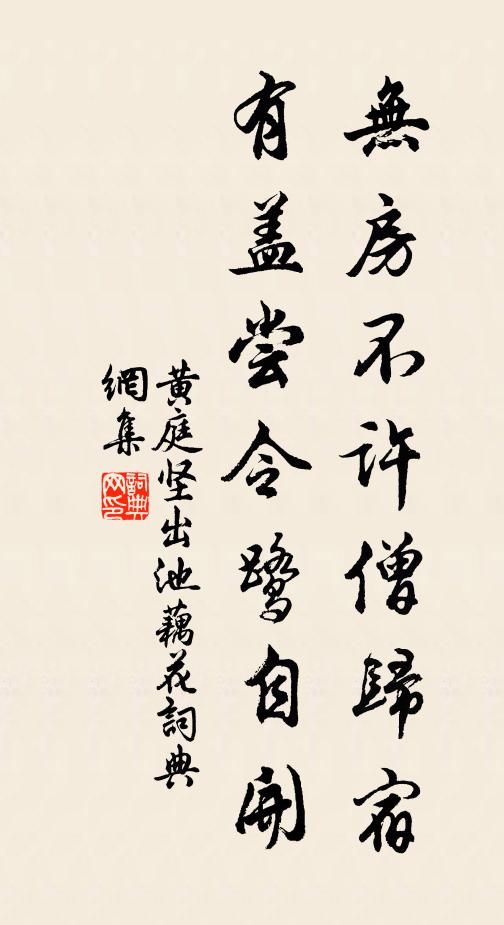 無房不許僧歸宿
有盖尝令鹭自開
黄庭坚出池藕花詞典
網集
詞典
网印